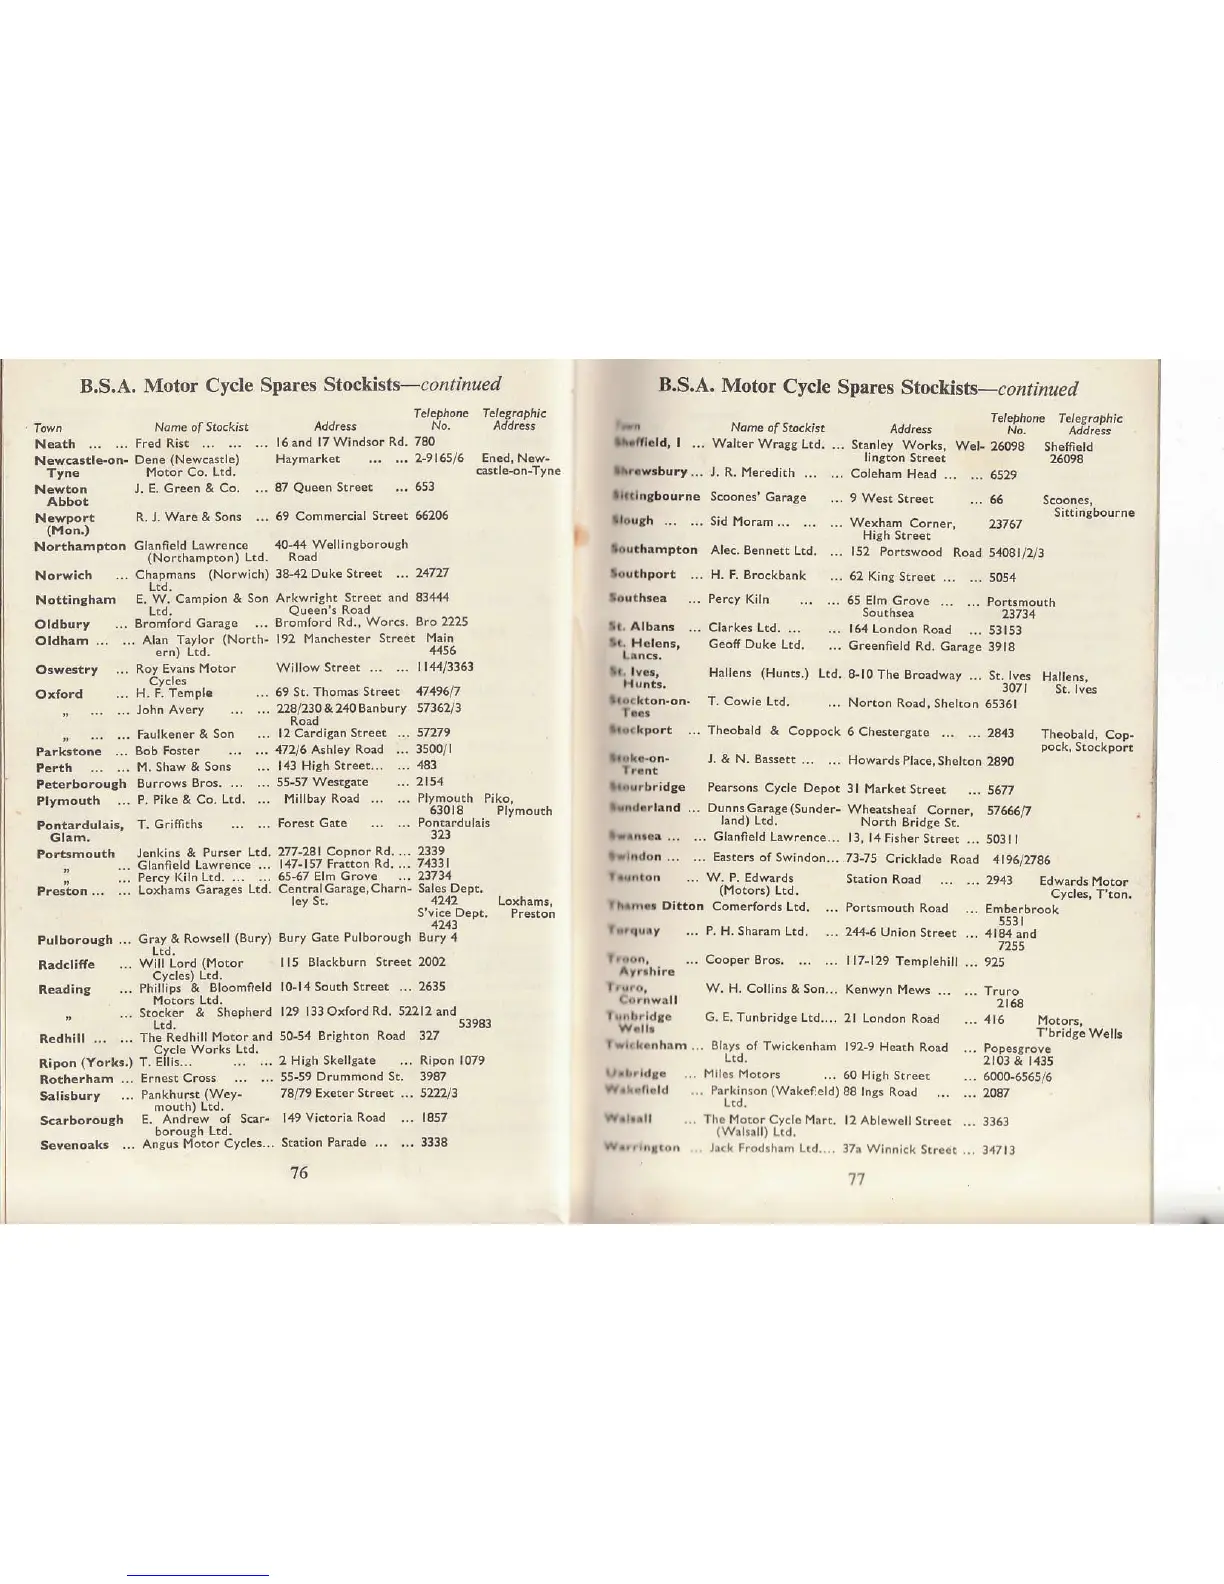 B.S.A. Motor Cycle Spares Stockists—continued
Telephone Telegraphic
Town Name of Stockist Address No. Address
Neath ... ... Fred Rist ... ... ... 16 and 17 Windsor Rd. 780
Newcastle-on- Dene (Newcastle) Haymarket ... ... 2-9165/6 Ened, New-
Tyne Motor Co. Ltd. castle-on-Tyne
Newton J. E. Green & Co. ... 87 Queen Street ... 653
Abbot
Newport R. J. Ware & Sons ... 69 Commercial Street 66206
(Mon.)
Northampton Glanfield Lawrence 40-44 Wellingborough
(Northampton) Ltd. Road
Norwich ... Chapmans (Norwich) 38-42 Duke Street ... 24727
Ltd.
Nottingham E. W. Campion & Son Arkwright Street and 83444
Ltd. Queen's Road
Oldbury ... Bromford Garage ... Bromford Rd., Worcs. Bro 2225
Oldham ... ... Alan Taylor (North- 192 Manchester Street Main
ern) Ltd. 4456
Oswestry ... Roy Evans Motor Willow Street ... ... 1144/3363
Cycles
Oxford ... H. F. Temple ... 69 St. Thomas Street 47496/7
„ ... ... John Avery ... ... 228/230 & 240 Banbury 57362/3
Road
„ ... ... Faulkener & Son ... 12 Cardigan Street ... 57279
Parkstone ... Bob Foster ... ... 472/6 Ashley Road ... 3500/1
Perth ... ... M. Shaw & Sons ... 143 High Street... ... 483
Peterborough Burrows Bros. ... ... 55-57 Westgate ... 2154
Plymouth ... P. Pike & Co. Ltd. ... Millbay Road ... ... Plymouth Piko,
63018 Plymouth
Pontardulais, T. Griffiths ... ... Forest Gate ... ... Pontardulais
Glam. 323
Portsmouth Jenkins & Purser Ltd. 277-281 Copnor Rd. ... 2339
„ ... Glanfield Lawrence ... 147-157 Fratton Rd. ... 74331
„ ... Percy Kiln Ltd. ... ... 65-67 Elm Grove ... 23734
Preston ... ... Loxhams Garages Ltd. Central Garage, Charn- Sales Dept.
ley St. 4242 Loxhams,
S'vice Dept. Preston
4243
Pulborough ... Gray & Rowsell (Bury) Bury Gate Pulborough Bury 4
Ltd.
Radcliffe ... Will Lord (Motor 115 Blackburn Street 2002
Cycles) Ltd.
Reading ... Phillips & Bloomfield 10-14 South Street ... 2635
Motors Ltd.
„ ... Stocker & Shepherd 129 133 Oxford Rd. 52212 and
Ltd. 53983
Redhill ... ... The Redhill Motor and 50-54 Brighton Road 327
Cycle Works Ltd.
Ripon (Yorks.) T. Ellis... ... ... 2 High Skellgate ... Ripon 1079
Rotherham ... Ernest Cross ... ... 55-59 Drummond St. 3987
Salisbury ... Pankhurst (Wey- 78/79 Exeter Street ... 5222/3
mouth) Ltd.
Scarborough E. Andrew of Scar- 149 Victoria Road ... 1857
borough Ltd.
Sevenoaks ... Angus Motor Cycles... Station Parade ... ... 3338
76
B.S.A. Motor Cycle Spares Stockists—continued
Telephone Telegraphic
Town Name of Stockist Address No. Address
Sheffield, 1 ... Walter Wragg Ltd. ... Stanley Works, Wel- 26098 Sheffield
lington Street 26098
Shrewsbury ... J. R. Meredith ... ... Coleham Head ... ... 6529
Sittingbourne Scoones' Garage ... 9 West Street ... 66 Scoones,
Sittingbourne
Slough ... ... Sid Moram ... ... ... Wexham Corner, 23767
High Street
Southampton Alec. Bennett Ltd. ... 152 Portswood Road 54081/2/3
Southport ... H. F. Brockbank ... 62 King Street ... ... 5054
Southsea ... Percy Kiln ... ... 65 Elm Grove ... ... Portsmouth
Southsea 23734
St. Albans ... Clarkes Ltd. ... ... 164 London Road ... 53153
St. Helens, Geoff Duke Ltd. ... Greenfield Rd. Garage 3918
Lancs.
St. Ives, Hallens (Hunts.) Ltd. 8-10 The Broadway ... St. Ives Hallens,
Hunts. 3071 St. Ives
Stockton-on- T. Cowie Ltd. ... Norton Road, Shelton 65361
Tees
Stockport ... Theobald & Coppock 6 Chestergate ... ... 2843 Theobald, Cop-
pock, Stockport
Stoke-on- J. & N. Bassett ... ... Howards Place, Shelton 2890
Trent
Stourbridge Pearsons Cycle Depot 31 Market Street ... 5677
Sunderland ... Dunns Garage (Sunder- Wheatsheaf Corner, 57666/7
land) Ltd. North Bridge St.
Swansea ... ... Glanfield Lawrence... 13, 14 Fisher Street ... 50311
Swindon ... ... Easters of Swindon... 73-75 Cricklade Road 4196/2786
Taunton ... W. P. Edwards Station Road ... ... 2943 Edwards Motor
(Motors) Ltd. Cycles, T'ton.
Thames Ditton Comerfords Ltd. ... Portsmouth Road ... Emberbrook
5531
Torquay ... P. H. Sharam Ltd. ... 244-6 Union Street ... 4184 and
7255
Troon, ... Cooper Bros. ... ... 117-129 Templehill ... 925
Ayrshire
Truro, W. H. Collins & Son... Kenwyn Mews ... ... Truro
Cornwall 2168
Tunbridge G. E. Tunbridge Ltd.... 21 London Road ... 416 Motors,
Wells T'bridge Wells
Twickenham ... Blays of Twickenham 192-9 Heath Road ... Popesgrove
Ltd. 2103 & 1435
Uxbridge ... Miles Motors ... 60 High Street ... 6000-6565/6
Wakefield ... Parkinson (Wakefield) 88 Ings Road ... ... 2087
Ltd.
Walsall ... The Motor Cycle Mart. 12 Ablewell Street ... 3363
(Walsall) Ltd.
Warrington ... Jack Frodsham Ltd.... 37a Winnick Street ... 34713
77